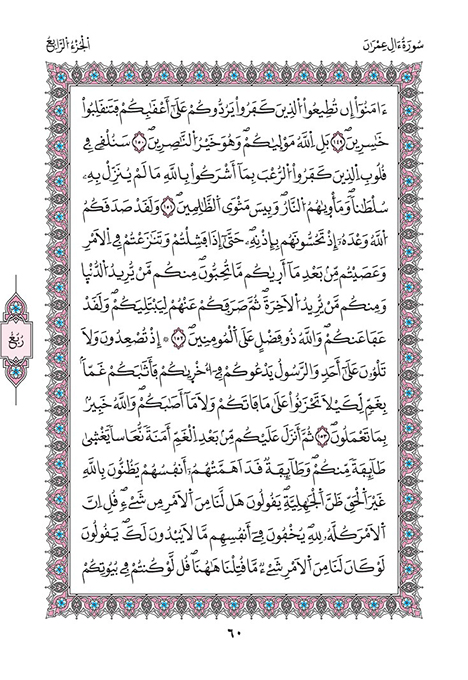 سُورَةُ ءَالِ عِمْرَٰنَ
اَلْجُزْءُ الرَّابِعُ
ءَامَنُوٓاْ إِن تُطِيعُواْ الذِينَ كَفَرُواْ يَرُدُّوكُمْ عَلَىٰٓ أَعْقَٰبِكُمْ فَتَنقَلِبُواْ
خَٰسِرِينَۖ ١٤٩ بَلِ اِللَّهُ مَوْلَيٰكُمْ وَهُوَ خَيْرُ النَّٰصِرِينَۖ ١٥٠ سَنُلْقِے فِے
قُلُوبِ الذِينَ كَفَرُواْ الرُّعْبَ بِمَآ أَشْرَكُواْ بِاللَّهِ مَا لَمْ يُنَزِّلْ بِهِۦ
سُلْطَٰناٗ وَمَأْوَيٰهُمُ النَّارُۖ وَبِيسَ مَثْوَى الظَّٰلِمِينَۖ ١٥١ وَلَقَدْ صَدَقَكُمُ
اللَّهُ وَعْدَهُۥٓ إِذْ تَحُسُّونَهُم بِإِذْنِهِۦۖ حَتَّىٰٓ إِذَا فَشِلْتُمْ وَتَنَٰزَعْتُمْ فِے الَامْرِ
وَعَصَيْتُم مِّنۢ بَعْدِ مَآ أَرَيٰكُم مَّا تُحِبُّونَۖ مِنكُم مَّنْ يُّرِيدُ الدُّنْيَا
وَمِنكُم مَّنْ يُّرِيدُ الَاخِرَةَۖ ثُمَّ صَرَفَكُمْ عَنْهُمْ لِيَبْتَلِيَكُمْۖ وَلَقَدْ
عَفَا عَنكُمْۖ وَاللَّهُ ذُو فَضْلٍ عَلَى الْمُومِنِينَۖ ١٥٢ ۞ إِذْ تُصْعِدُونَ وَلَا
تَلْوُۥنَ عَلَىٰٓ أَحَدٖ وَالرَّسُولُ يَدْعُوكُمْ فِےٓ أُخْرَيٰكُمْ فَأَثَٰبَكُمْ غَمّاَۢ
بِغَمّٖ لِّكَيْلَا تَحْزَنُواْ عَلَىٰ مَا فَاتَكُمْ وَلَا مَآ أَصَٰبَكُمْۖ وَاللَّهُ خَبِيرُۢ
بِمَا تَعْمَلُونَۖ ١٥٣ ثُمَّ أَنزَلَ عَلَيْكُم مِّنۢ بَعْدِ الْغَمِّ أَمَنَةٗ نُّعَاساٗ يَغْشَىٰ
طَآئِفَةٗ مِّنكُمْۖ وَطَآئِفَةٞ قَدَ اَهَمَّتْهُمُۥٓ أَنفُسُهُمْ يَظُنُّونَ بِاللَّهِ
غَيْرَ الْحَقِّ ظَنَّ الْجَٰهِلِيَّةِۖ يَقُولُونَ هَل لَّنَا مِنَ الَامْرِ مِن شَےْءٖۖ قُلِ اِنَّ
الَامْرَ كُلَّهُۥ لِلهِۖ يُخْفُونَ فِےٓ أَنفُسِهِم مَّا لَا يُبْدُونَ لَكَۖ يَقُولُونَ
لَوْ كَانَ لَنَا مِنَ الَامْرِ شَےْءٞ مَّا قُتِلْنَا هَٰهُنَاۖ قُل لَّوْ كُنتُمْ فِے بُيُوتِكُمْ
رُبُعُ
٦٠